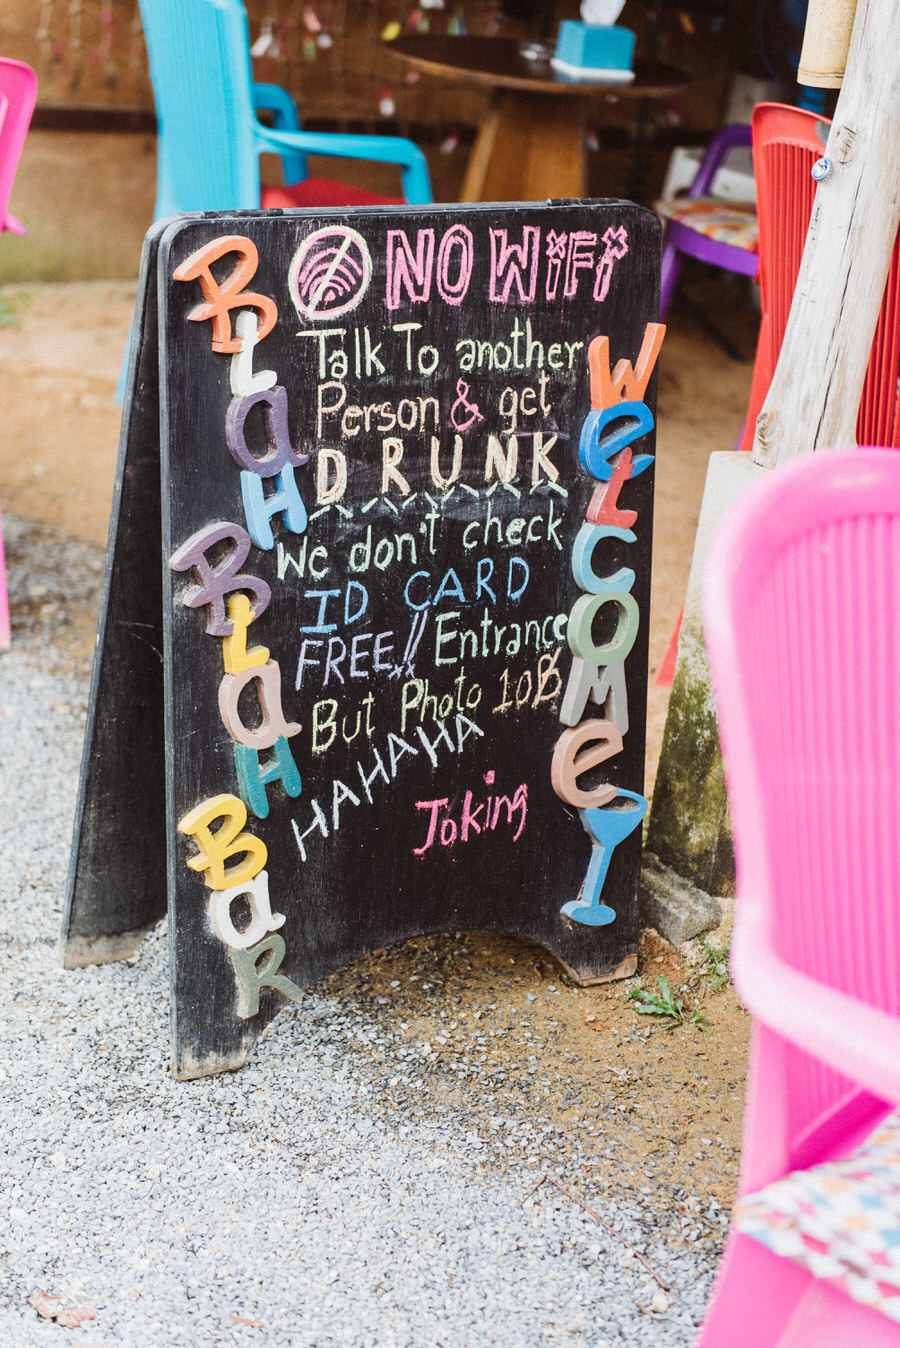 BLaH
BLaH
BaR
NO WiFi
Talk To another
Person & get
DRUNK
We don't check
ID CARD
FREE!! Entrance
But Photo 10฿
HAHAHA
Joking
WeLCOMe